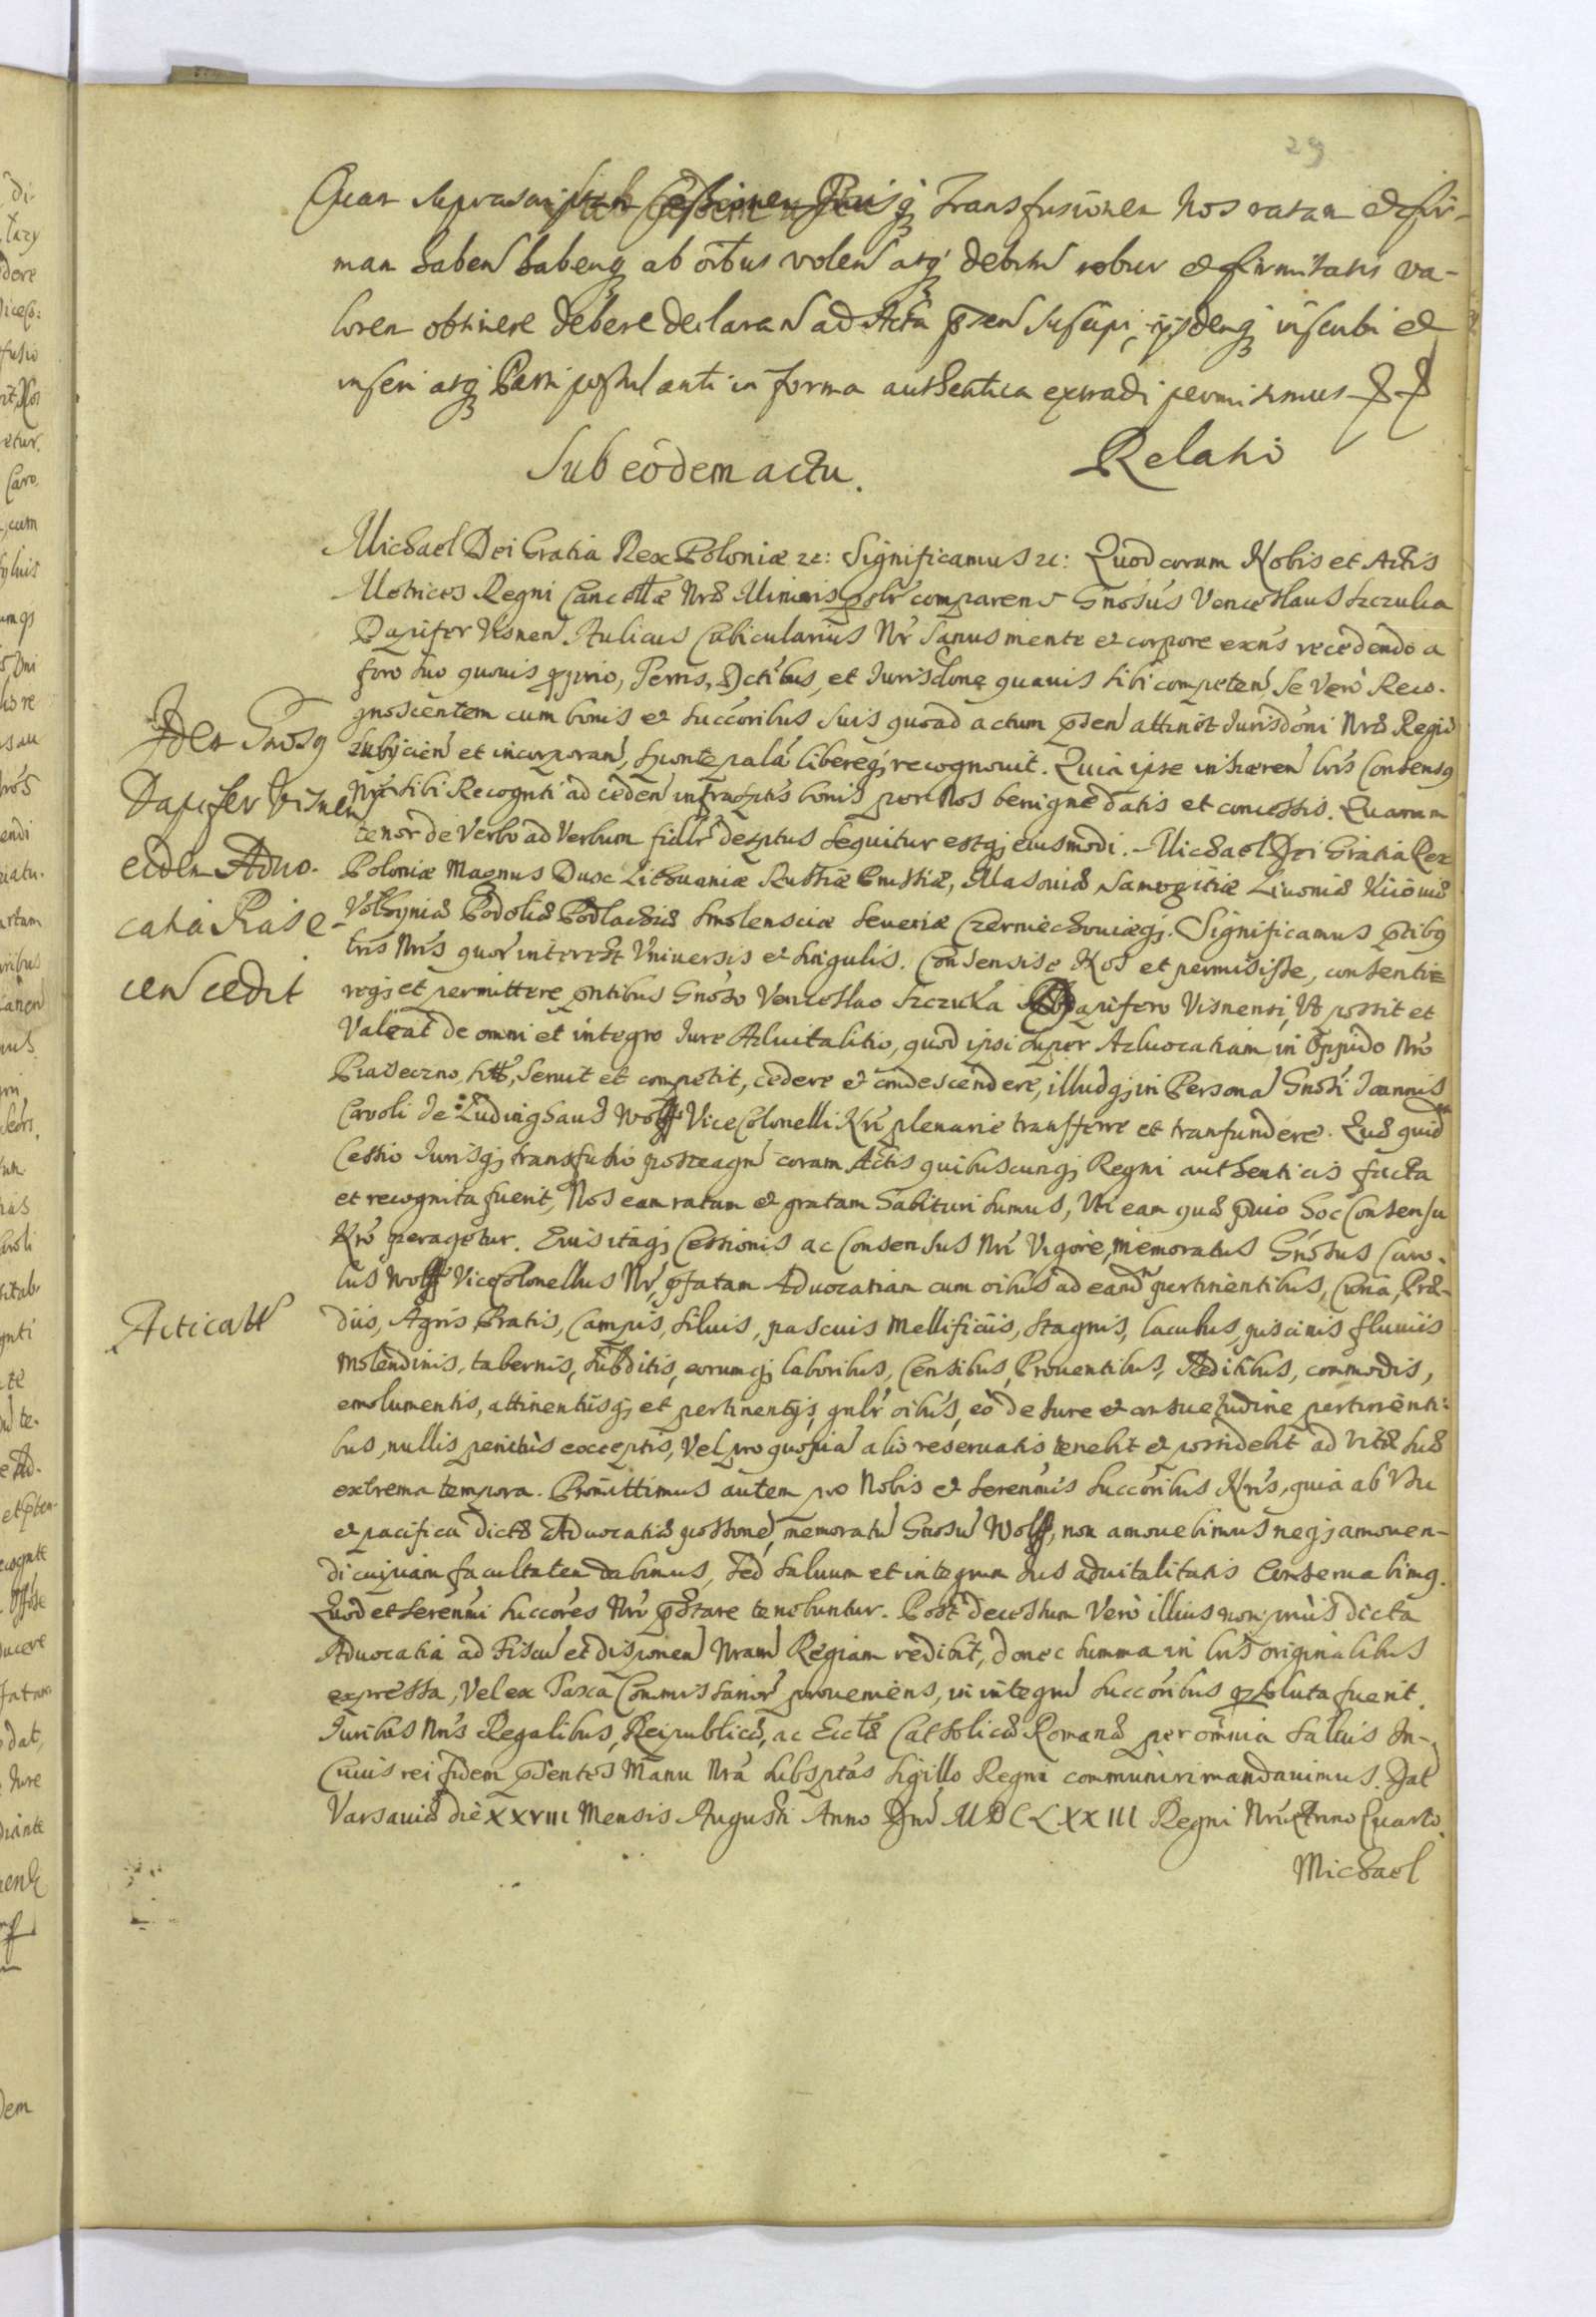 29
Quar suprascriptam Cessionem Jurisq̢ Transfusionem Nos ratam et fir-
mam haben̄ habenq̢ ab oībus volen̄ atq̢ debitū robur et firmitatis va-
lorem obtinere debere declaran̄ ad Acta p̄sen̄ suscipi, ijsdemq̢ inscribi et
inseri atq̢ Parti postulanti in forma authentica extradi permisimus
Sub eodem actu. Relatio
Michael Dei Gratia Rex Poloniæ &c: Significamus &c: Quod coram Nobis et Actis
Metrices Regni Cancellæ Nræ Minoris pslr comparens Gnosus Venceslaus Szczuka
Dapifer Visnen̄ Aulicus Cubicularius Nr̄ sanus mente et corpore exn̄s recedendo a
foro suo quouis pprio, Terris, Dctibus, et Jurisdone quauis sibi competen̄ se vero Reco-
gnoscentem cum bonis et succoribus suis quoad actum p̄sen̄ attinet Jurisdoni Nræ Regiæ
subijcien̄ et incorporan̄, sponte palā libereq̢ recognouit. Quia ipse inhæren̄ lris Consensq
Nri sibi Recognti ad ceden̄ infrasptis bonis per Nos benigne datis et concessis. Quarum
tenor de Verbo ad Verbum fidlr desptus sequitur estq̢ eiusmodi. Michael Dei Gratia Rex
Poloniæ Magnus Dux Lithuaniæ Russiæ Prussiæ, Masouiæ Samogitiæ Liuoniæ Kiiouiæ
Volhyniæ Podoliæ Podlachiæ Smolensciæ Seueriæ Czerniechouiæq̢. Significamus p̄ntibq
lris Nris quor̄ interest Vniuersis et singulis. Consensisse Nos et permisisse, consentire
req̢ et permittere p̄ntibus Gnoso Venceslao Szczuka Dapifero Visnensi, Vt possit et
Valeat de omni et integro Jure Aduitalitio, quod ipsi super Aduocatiam in Oppido Nro
Piaseczno, seruit et competit, cedere et condescendere, illudq̢ in Personā Gnosi Joannis
Caroli de Ludingshaus Wolff ViceColonelli Nri plenarie transferre et tranfundere. Quæ quidem
Cessio Jurisq̢ transfusio posteaqm̄ coram Actis quibuscunq̢ Regni authenticis facta
et recognita fuerit, Nos eam ratam et gratam habituri sumus, Vti eam quæ p̄uio hoc Consensu
Nro peragetur. Eius itaq̢ Cessionis ac Consensus Nri Vigore, memoratus Gnosus Caro-
lus Wolff ViceColonellus Nr̄, p̄fatam Aduocatiam cum oibus ad eandm̄ pertinentibus, Curia, Præ-
diis, Agris Pratis, Campis, siluis, pascuis Mellificiis, stagnis, lacubus, piscinis fluuiis
Molendinis, tabernis, subditis, eorumq̢ laboribus, Censibus, Prouentibus, Reditibus, commodis,
emolumentis, attinentiisq̢ et pertinentijs, gnlr oibus, eo de Jure et consuetudine pertinenti-
bus, nullis penitus exceptis, Vel pro quopiā alio reseruatis tenebit et possidebit ad Vitæ suæ
extrema tempora. Promittimus autem pro Nobis et Serenmis Succoribus Nris, quia ab Vsu
et pacifica dictæ Aduocatiæ possione, memoratū Gnosū Wolff, non amouebimus neq̢ amouen-
di cuipiam facultatem dabimus, sed saluum et integrum Jus aduitalitatis conseruabimq.
Quod et Serenmi Succores Nri p̄stare tenebuntur. Post decessum Vero illius non prius dicta
Aduocatia ad Fiscū et disponen̄ Nram Regiam redibit, donec summa in lris originalibus
expressa, Vel ex Taxa Commissarior̄ proueniens, in integrū succoribus psoluta fuerit.
Juribus Nris Regalibus, Reipublicæ, ac Ecclæ Catholicæ Romanæ per omnia saluis In-
Cuius rei fidem p̄sentes Manu Nra subsptas sigillo Regni communiri mandauimus. Dat
Varsauiæ die XXVIII Mensis Augusti Anno Dni MDCLXXIII Regni Nri Anno Quarto.
Michael
Idem Gnosq
Dapifer Visnen̄
eidem Aduo-
catiā Piase-
cen̄ cedit
Acticatt